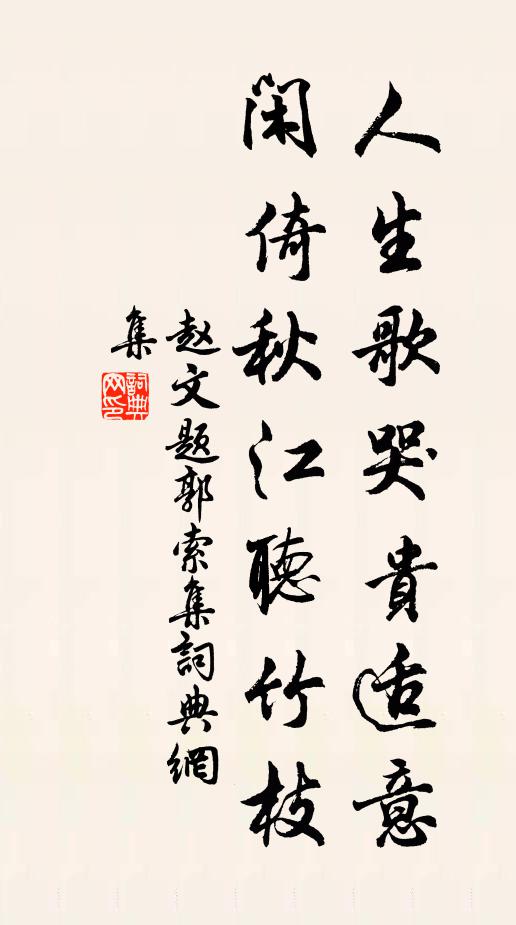 人生歌哭貴适意
闲倚秋江聽竹枝
赵文题郭索集詞典網
集
詞典网印